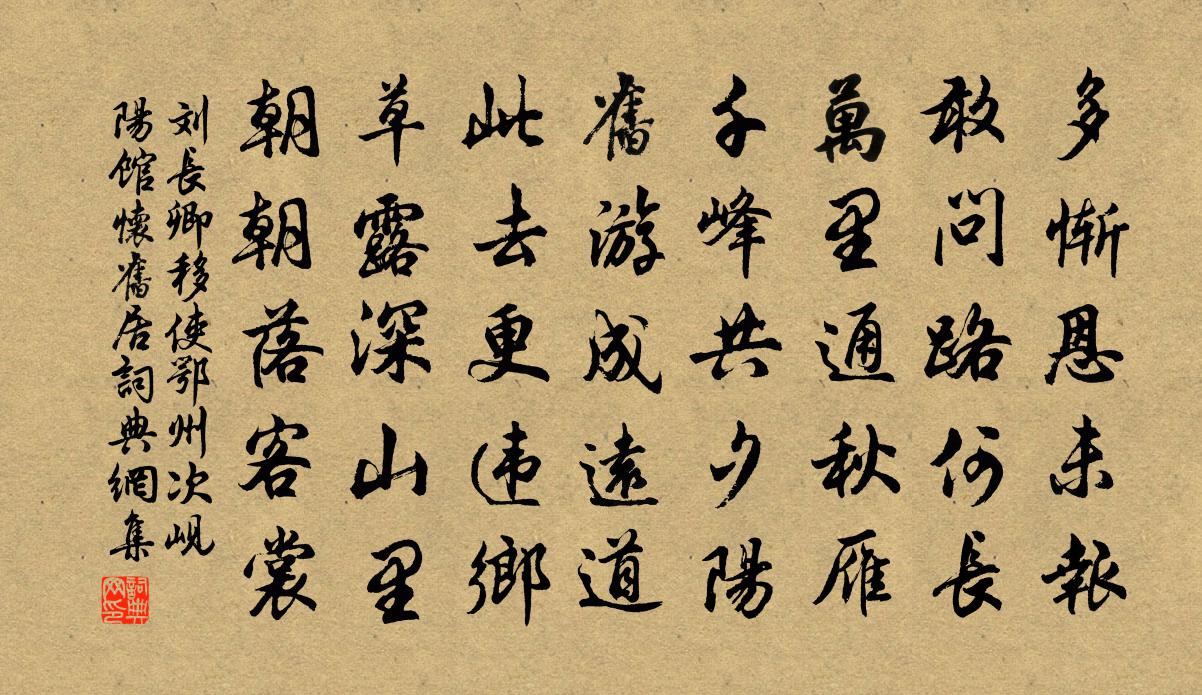 多慚恩未報
敢問路何長
萬里通秋雁
千峰共夕陽
舊游成遠道
此去更违鄉
草露深山里
朝朝落客裳
刘長卿移使鄂州次峴
陽館懷舊居詞典網集
詞典
网印